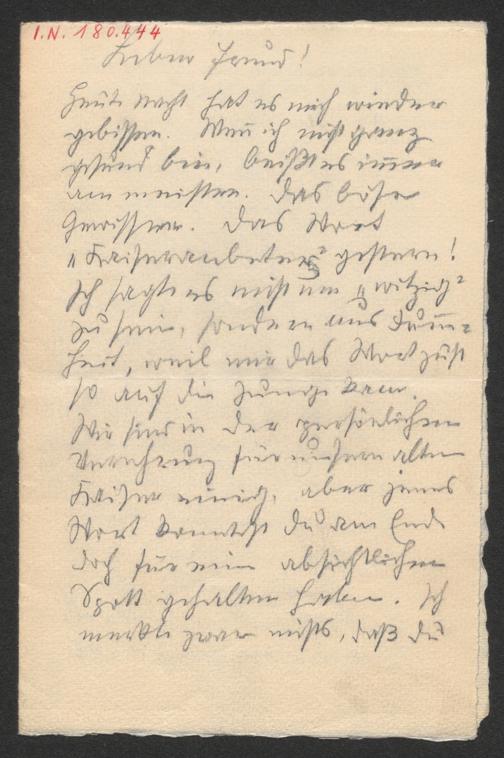 I.N. 180.444
Lieber Freund!
Heute Nacht hat es mich wieder
gebissen. Wenn ich nicht ganz
gesund bin, beißt es immer
am meisten. Das böse
Gewissen. Das Wort
„Kaiseranbeter" gestern!
Ich sagte es nicht um „witzig"
zu sein, sondern aus Dumm=
heit, weil mir das Wort just
so auf die Zunge kam.
Wir sind in der persönlichen
Verehrung für unsern alten
Kaiser einig, aber jenes
Wort konntest du am Ende
doch für einen absichtlichen
Spott gehalten haben. Ich
merkte zwar nichts, daß du